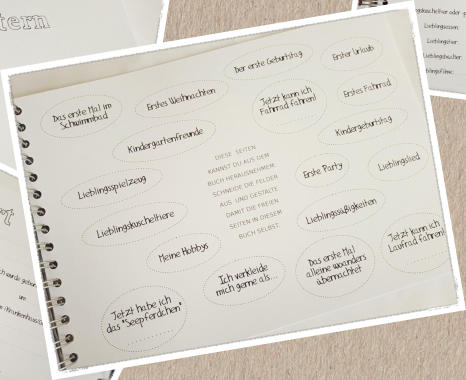 tern
Der erste Geburtstag
Erster Urlaub
Das erste Mal im
Schwimmbad
Erstes Weihnachten
Jetzt kann ich
Fahrrad fahren!
Erstes Fahrrad
Kindergartenfreunde
Kindergeburtstag
DIESE SEITEN
KANNST DU AUS DEM
BUCH HERAUSNEHMEN.
SCHNEIDE DIE FELDER
AUS UND GESTALTE
DAMIT DIE FREIEN
SEITEN IN DIESEM
BUCH SELBST.
Erste Party
Lieblingslied
Lieblingsspielzeug
Lieblingskuscheltiere
Lieblingssüßigkeiten
Meine Hobbys
Jetzt kann ich
Laufrad fahren!
Ich verkleide
mich gerne als...
Das erste Mal
alleine woanders
übernachtet
Jetzt habe ich
das "Seepferdchen"
Lieblingsessen
Lieblingstier
Lieblingsbücher
um